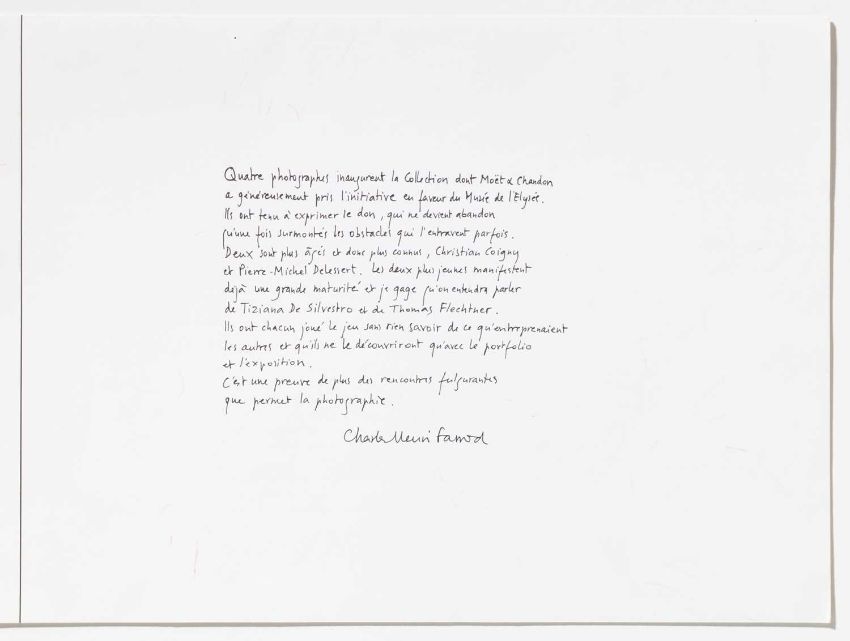 Quatre photographes inaugurent la Collection dont Moët & Chandon
a généreusement pris l'initiative en faveur du Musée de l'Elysée.
Ils ont tenu à exprimer le don, qui ne devient abandon
qu'une fois surmontés les obstacles qui l'entravent parfois.
Deux sont plus âgés et donc plus connus, Christian Coigny
et Pierre-Michel Delessert. Les deux plus jeunes manifestent
déjà une grande maturité et je gage qu'on entendra parler
de Tiziana De Silvestro et de Thomas Flechtner.
Ils ont chacun joué le jeu sans rien savoir de ce qu'entreprenaient
les autres et qu'ils ne le découvriront qu'avec le portfolio
et l'exposition.
C'est une preuve de plus des rencontres fulgurantes
que permet la photographie.
Charles Henri Favrod